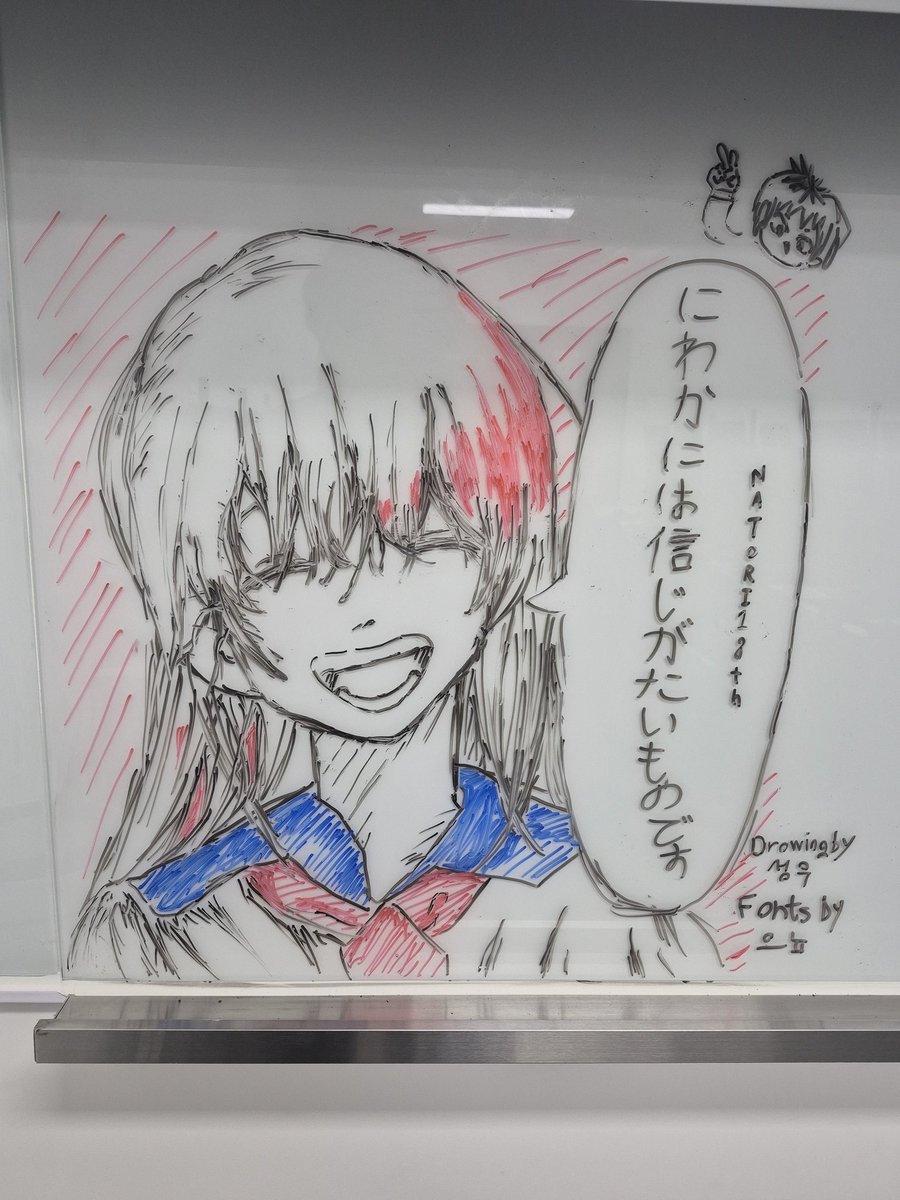 にわかには信じがたいものです
NATORI18th
Drowing by
성욱
Fonts by
으뉴